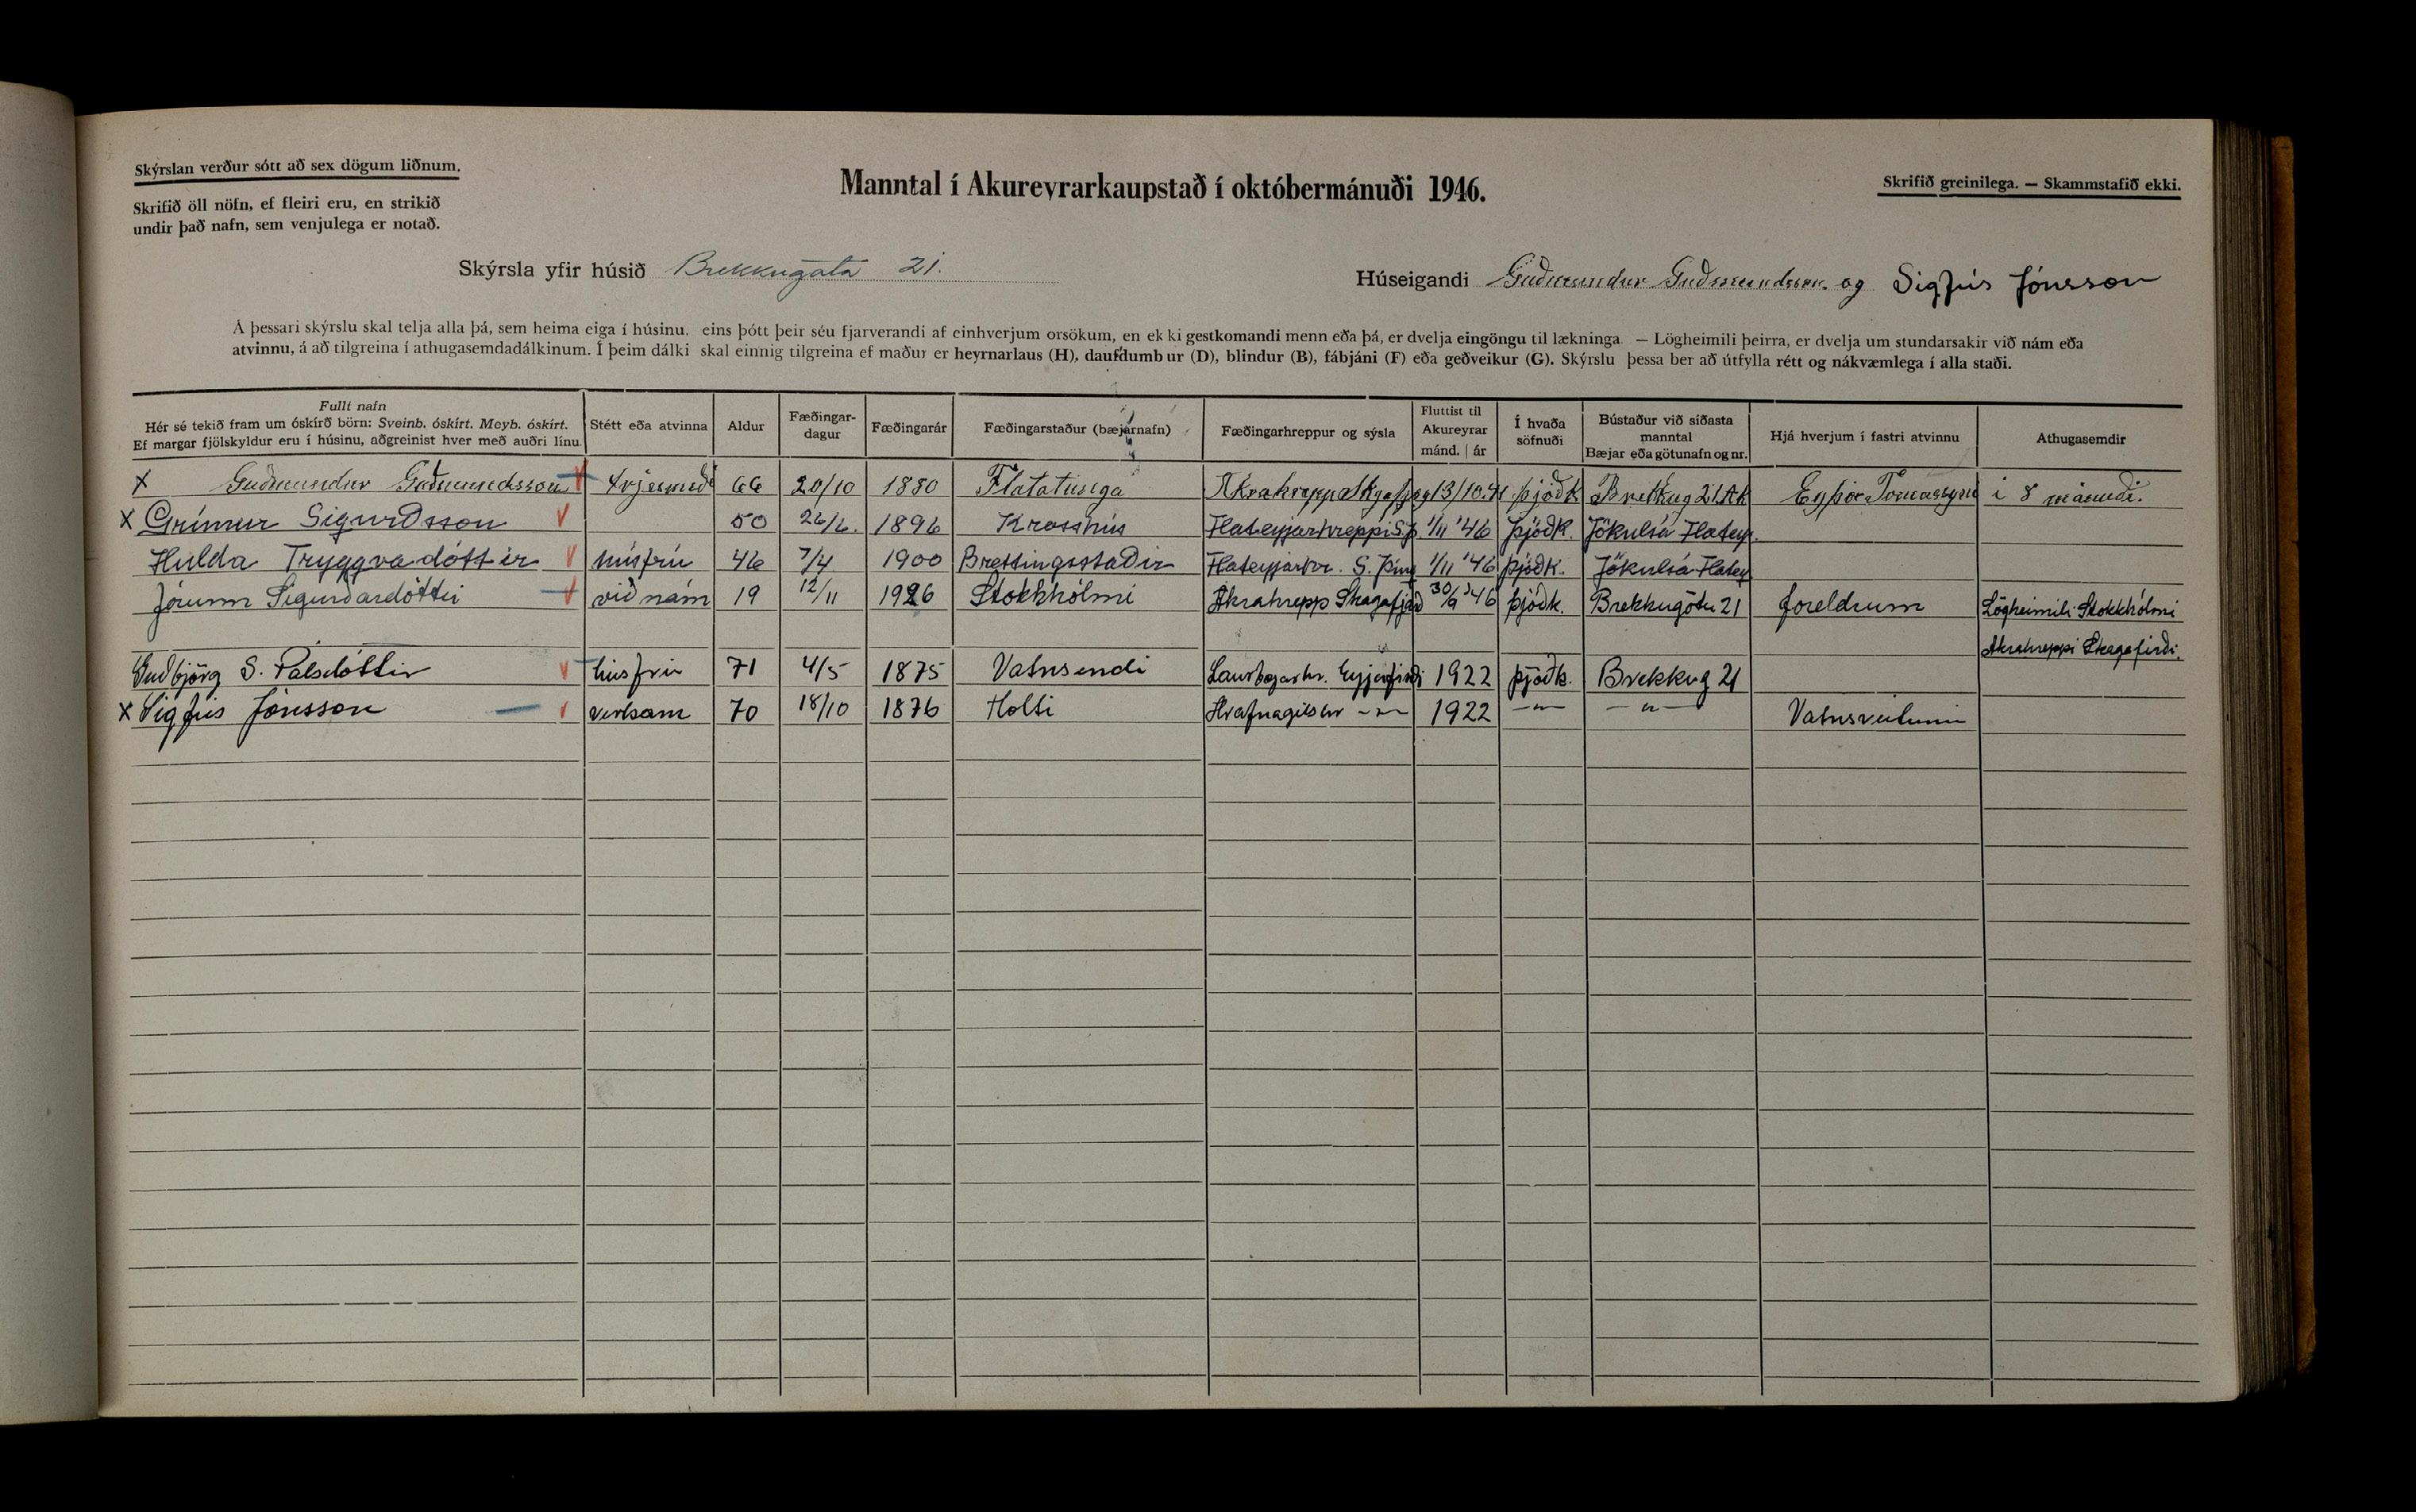 Skýrslan verður sótt að sex dögum liðnum.
Skrifið öll nöfn, ef fleiri eru, en strikið
undir það nafn, sem venjulega er notað.
Manntal í Akureyrarkaupstað í októbermánuði 1946.
Skrifið greinilega. — Skammstafið ekki.
Skýrsla yfir húsið Brekkugata 21.
Húseigandi Guðmundur Guðmundsson og Sigfús Jónsson
Á þessari skýrslu skal telja alla þá, sem heima eiga í húsinu, eins þótt þeir séu fjarverandi af einhverjum orsökum, en ekki gestkomandi menn eða þá, er dvelja eingöngu til lækninga. — Lögheimili þeirra, er dvelja um stundarsakir við nám eða
atvinnu, á að tilgreina í athugasemdadálkinum. Í þeim dálki skal einnig tilgreina ef maður er heyrnarlaus (H), daufdumbur (D), blindur (B), fábjáni (F) eða geðveikur (G). Skýrslu þessa ber að útfylla rétt og nákvæmlega í alla staði.
Fullt nafn
Hér sé tekið fram um óskírð börn: Sveinb. óskírt. Meyb. óskírt.
Ef margar fjölskyldur eru í húsinu, aðgreinist hver með auðri línu.
Stétt eða atvinna
Aldur
Fæðingar-
dagur
Fæðingarár
Fæðingarstaður (bæjarnafn)
Fæðingarhreppur og sýsla
Fluttist til
Akureyrar
mánd. | ár
Í hvaða
söfnuði
Bústaður við síðasta
manntal
Bæjar eða götunafn og nr.
Hjá hverjum í fastri atvinnu
Athugasemdir
X Guðmundur Guðmundsson V 66 20/10 1880 Flatatunga þjóðk Brekkug 21 Ak Eyþór Tómassyni í 8 mánuði.
X Grímur Sigurðsson V 50 26/6. 1896 Krosshús Flateyjarhreppi S.Þ. 1/11 '46 Þjóðk. Jökulsá Flatey.
Hulda Tryggvadóttir V húsfrú 46 7/4 1900 Brettingsstaðir Flateyjarhr. S. Þing 1/11 '46 þjóðk. Jökulsá Flatey
Jórunn Sigurðardóttir við nám 19 12/11 1926 Stokkhólmi Akrahrepp Skagafjörð 30/9 '46 þjóðk. Brekkugötu 21 foreldrum Lögheimili Stokkhólmi
Akrahreppi Skagafirði.
Guðbjörg S. Pálsdóttir V húsfrú 71 4/5 1875 Vatnsendi Saurbæjarhr. Eyjafirði 1922 þjóðk. Brekkug 21
X Sigfús Jónsson V verkam 70 18/10 1876 Holti Hrafnagilshr —"— 1922 —"— —"— Vatnsveitunni